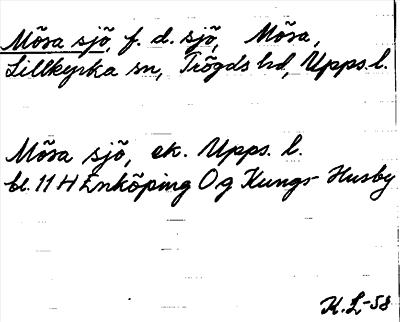 Mõsa sjõ, f. d. sjõ, Mõsa,
Lillkyrka sn, Trõgds hd, Upps. l.
Mõsa sjõ, ek. Upps. l.
bl. 11 H Enkõping O g Kungs-Husby
K.L-58